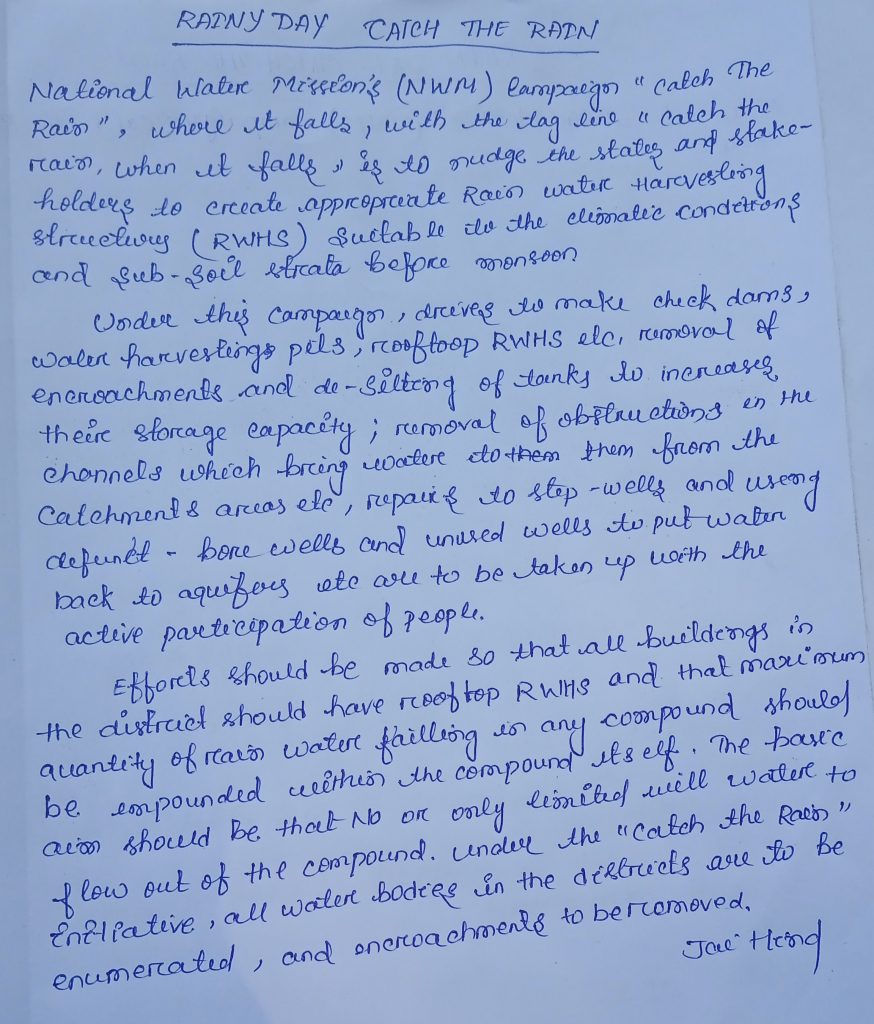 RAINY DAY CATCH THE RAIN
National Water Mission's (NWM) Campaign "Catch The
Rain", where it falls, with the tag line "catch the
rain, when it falls, is to nudge the states and stake-
holders to create appropriate Rain water Harvesting
structures (RWHS) Suitable to the climatic conditions
and Sub-Soil strata before monsoon
Under this campaign, drives to make check dams,
water harvestings pits, rooftoop RWHS etc, removal of
encroachments and de-Silting of tanks to increases
their storage capacity; removal of obstructions in the
channels which bring water to them from the
Catchments areas etc, repairs to step-wells and using
defunct - bore wells and unused wells to put water
back to aquifers etc are to be taken up with the
active participation of people.
Efforts should be made so that all buildings in
the district should have rooftop RWHS and that maximum
quantity of rain water failling in any compound should
be impounded within the compound itself. The basic
aim should be that No or only limited will water to
flow out of the compound. under the "catch the Rain"
initiative, all water bodies in the districts are to be
enumerated, and encroachments to be removed.
Jai Hind